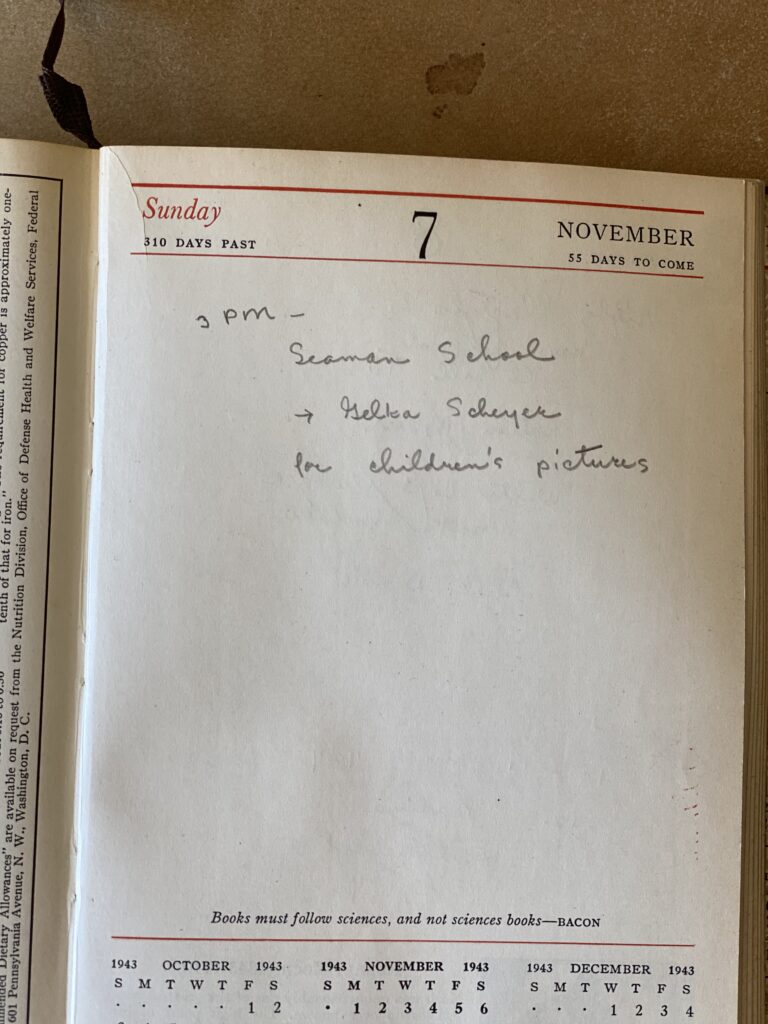 requirement for copper is approximately one-
tenth of that for iron."
Dietary Allowances" are available on request from the Nutrition Division, Office of Defense Health and Welfare Services, Federal
601 Pennsylvania Avenue, N. W., Washington, D. C.
Sunday 7 NOVEMBER
310 DAYS PAST 55 DAYS TO COME
3 PM –
Seaman School
→ Gelka Scheyer
for children's pictures
Books must follow sciences, and not sciences books—BACON
1943 OCTOBER 1943 1943 NOVEMBER 1943 1943 DECEMBER 1943
S M T W T F S S M T W T F S S M T W T F S
· · · · · 1 2 · 1 2 3 4 5 6 · · · 1 2 3 4